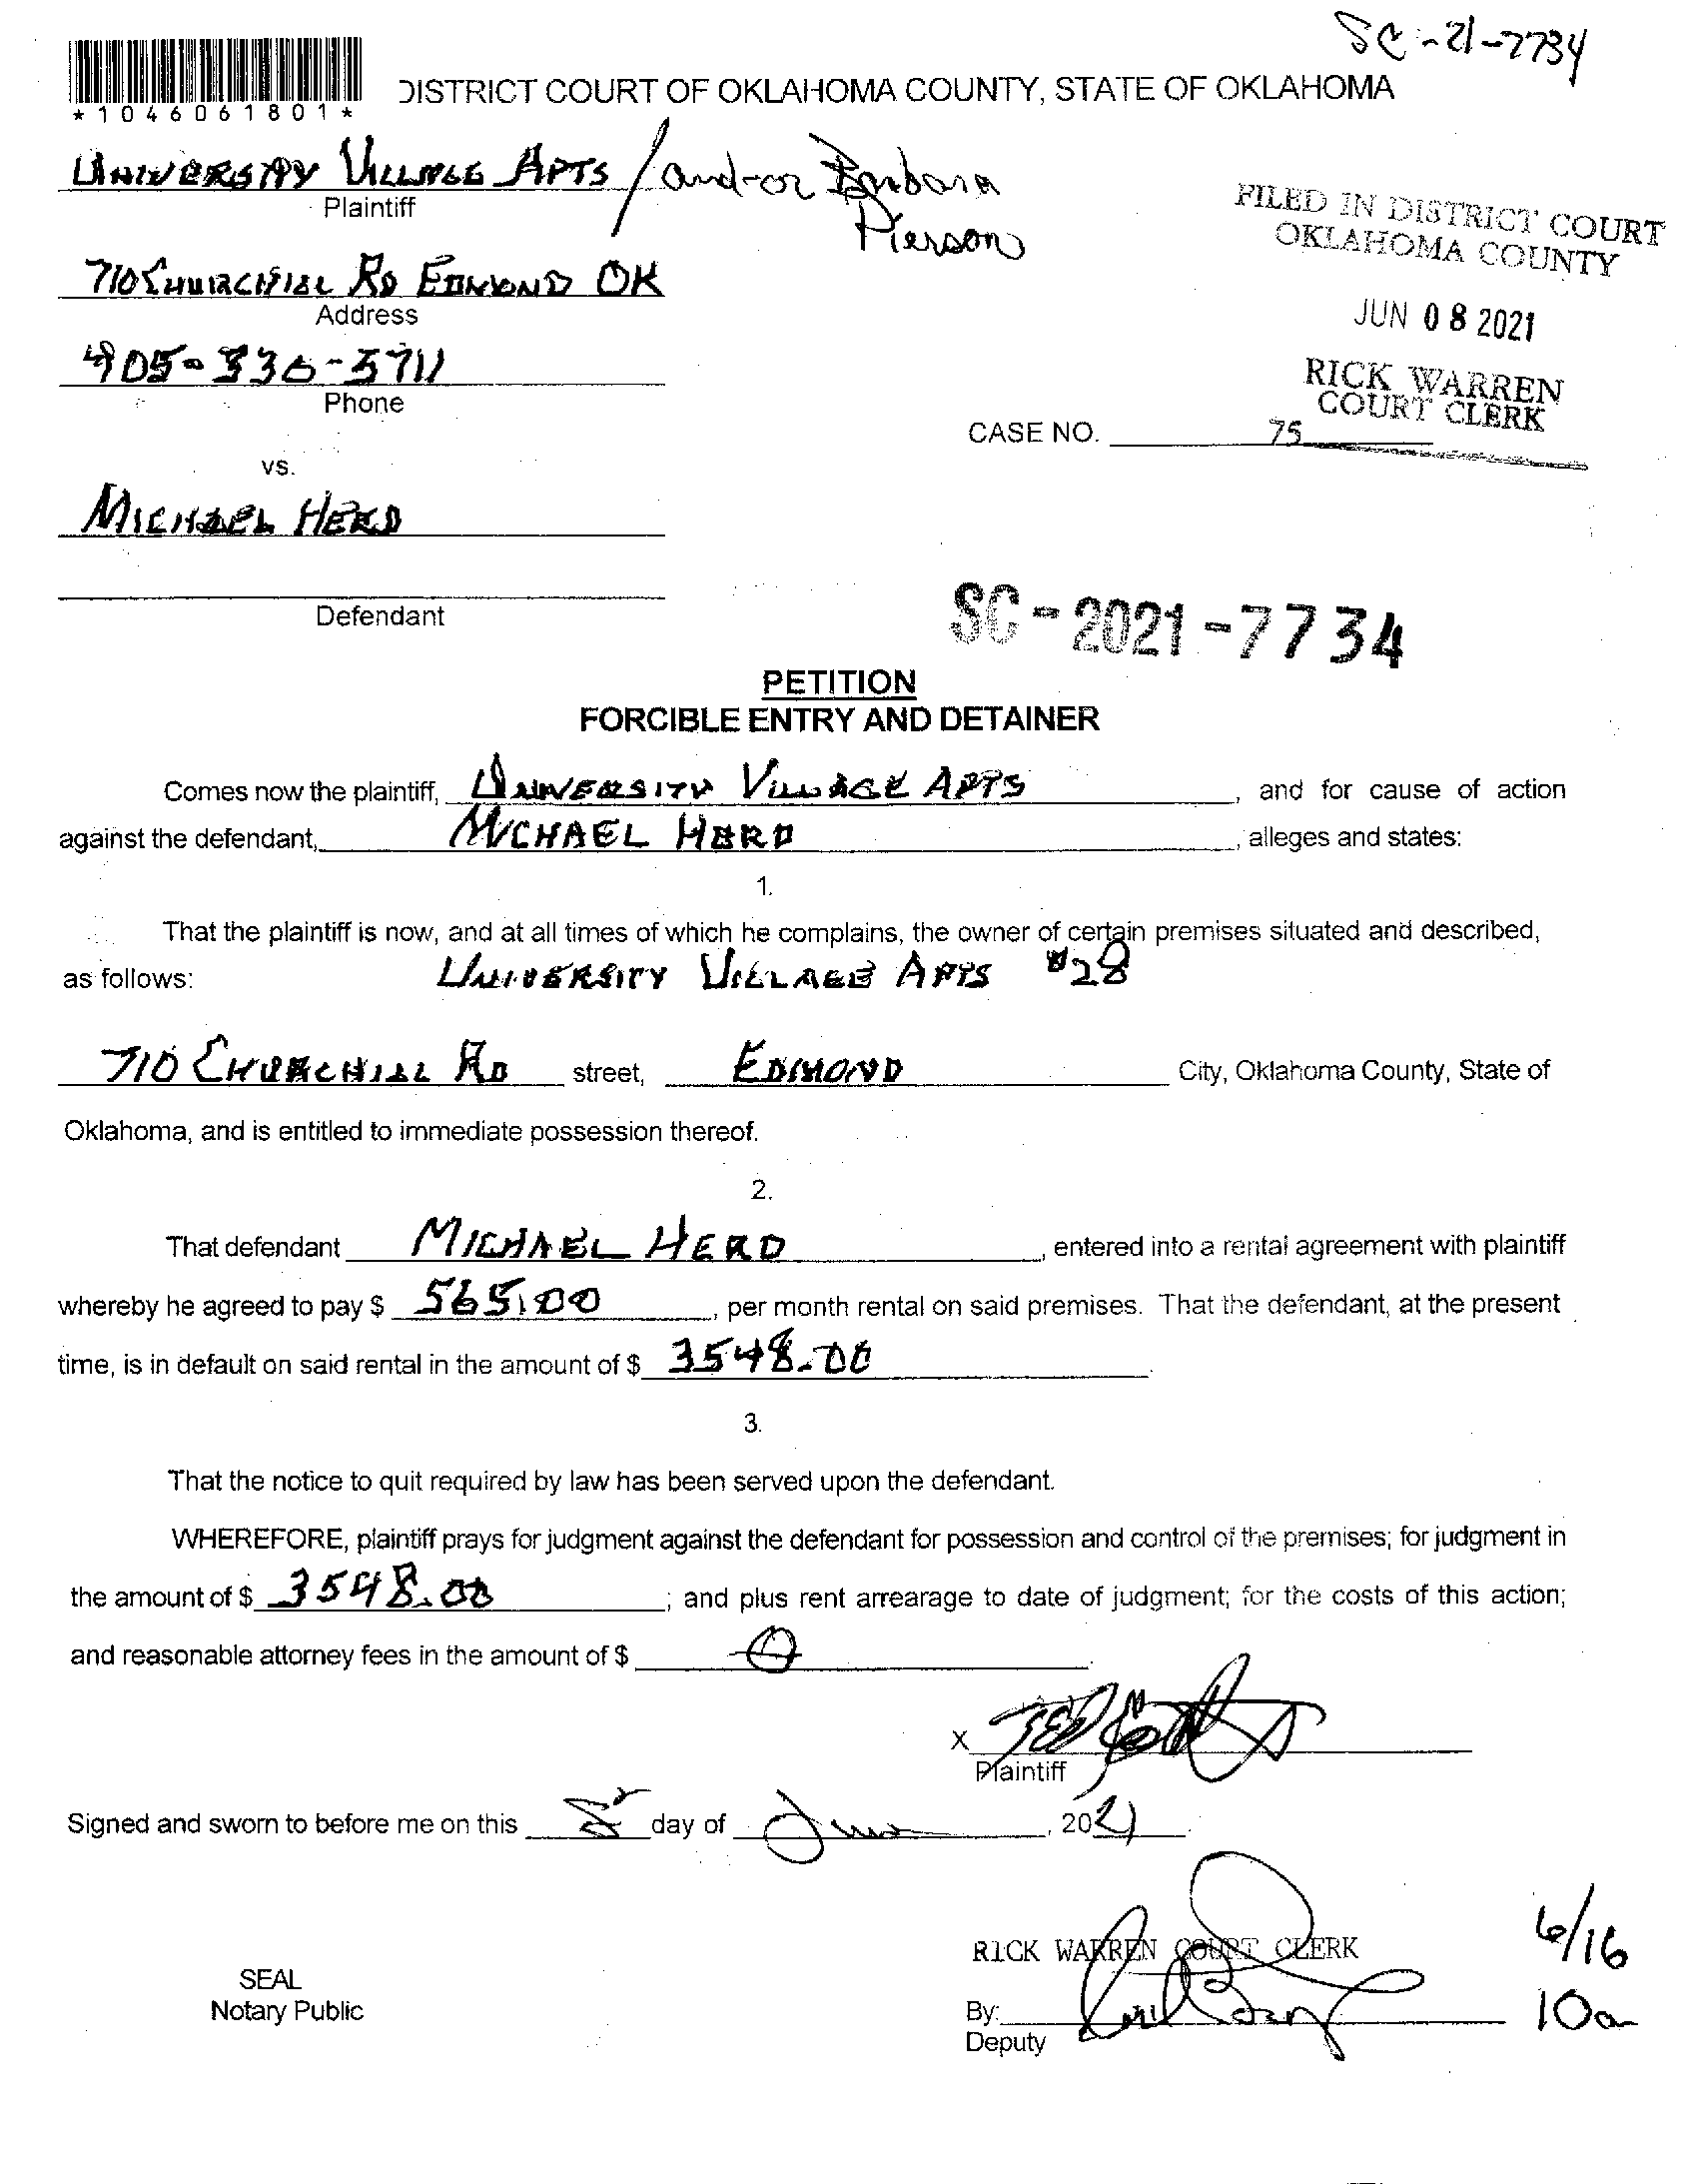 SC-21-7734
*1046061801*
DISTRICT COURT OF OKLAHOMA COUNTY, STATE OF OKLAHOMA
UNIVERSITY VILLAGE APTS / and-or Barbara Pierson
Plaintiff
FILED IN DISTRICT COURT
OKLAHOMA COUNTY
710 CHURCHILL RD EDMOND OK
Address
JUN 08 2021
405-330-5711
Phone
RICK WARREN
COURT CLERK
CASE NO. 75
vs.
MICHAEL HERD
Defendant
SC-2021-7734
PETITION
FORCIBLE ENTRY AND DETAINER
Comes now the plaintiff, UNIVERSITY VILLAGE APTS, and for cause of action
against the defendant, MICHAEL HERD, alleges and states:
1.
That the plaintiff is now, and at all times of which he complains, the owner of certain premises situated and described,
as follows: UNIVERSITY VILLAGE APTS #28
710 CHURCHILL RD street, EDMOND City, Oklahoma County, State of
Oklahoma, and is entitled to immediate possession thereof.
2.
That defendant MICHAEL HERD, entered into a rental agreement with plaintiff
whereby he agreed to pay $ 565.00, per month rental on said premises. That the defendant, at the present
time, is in default on said rental in the amount of $ 3548.00.
3.
That the notice to quit required by law has been served upon the defendant.
WHEREFORE, plaintiff prays for judgment against the defendant for possession and control of the premises; for judgment in
the amount of $ 3548.00; and plus rent arrearage to date of judgment; for the costs of this action;
and reasonable attorney fees in the amount of $ 0.
X
Plaintiff
Signed and sworn to before me on this 8 day of June, 2021.
RICK WARREN COURT CLERK
6/16
SEAL
Notary Public
By:
10a
Deputy